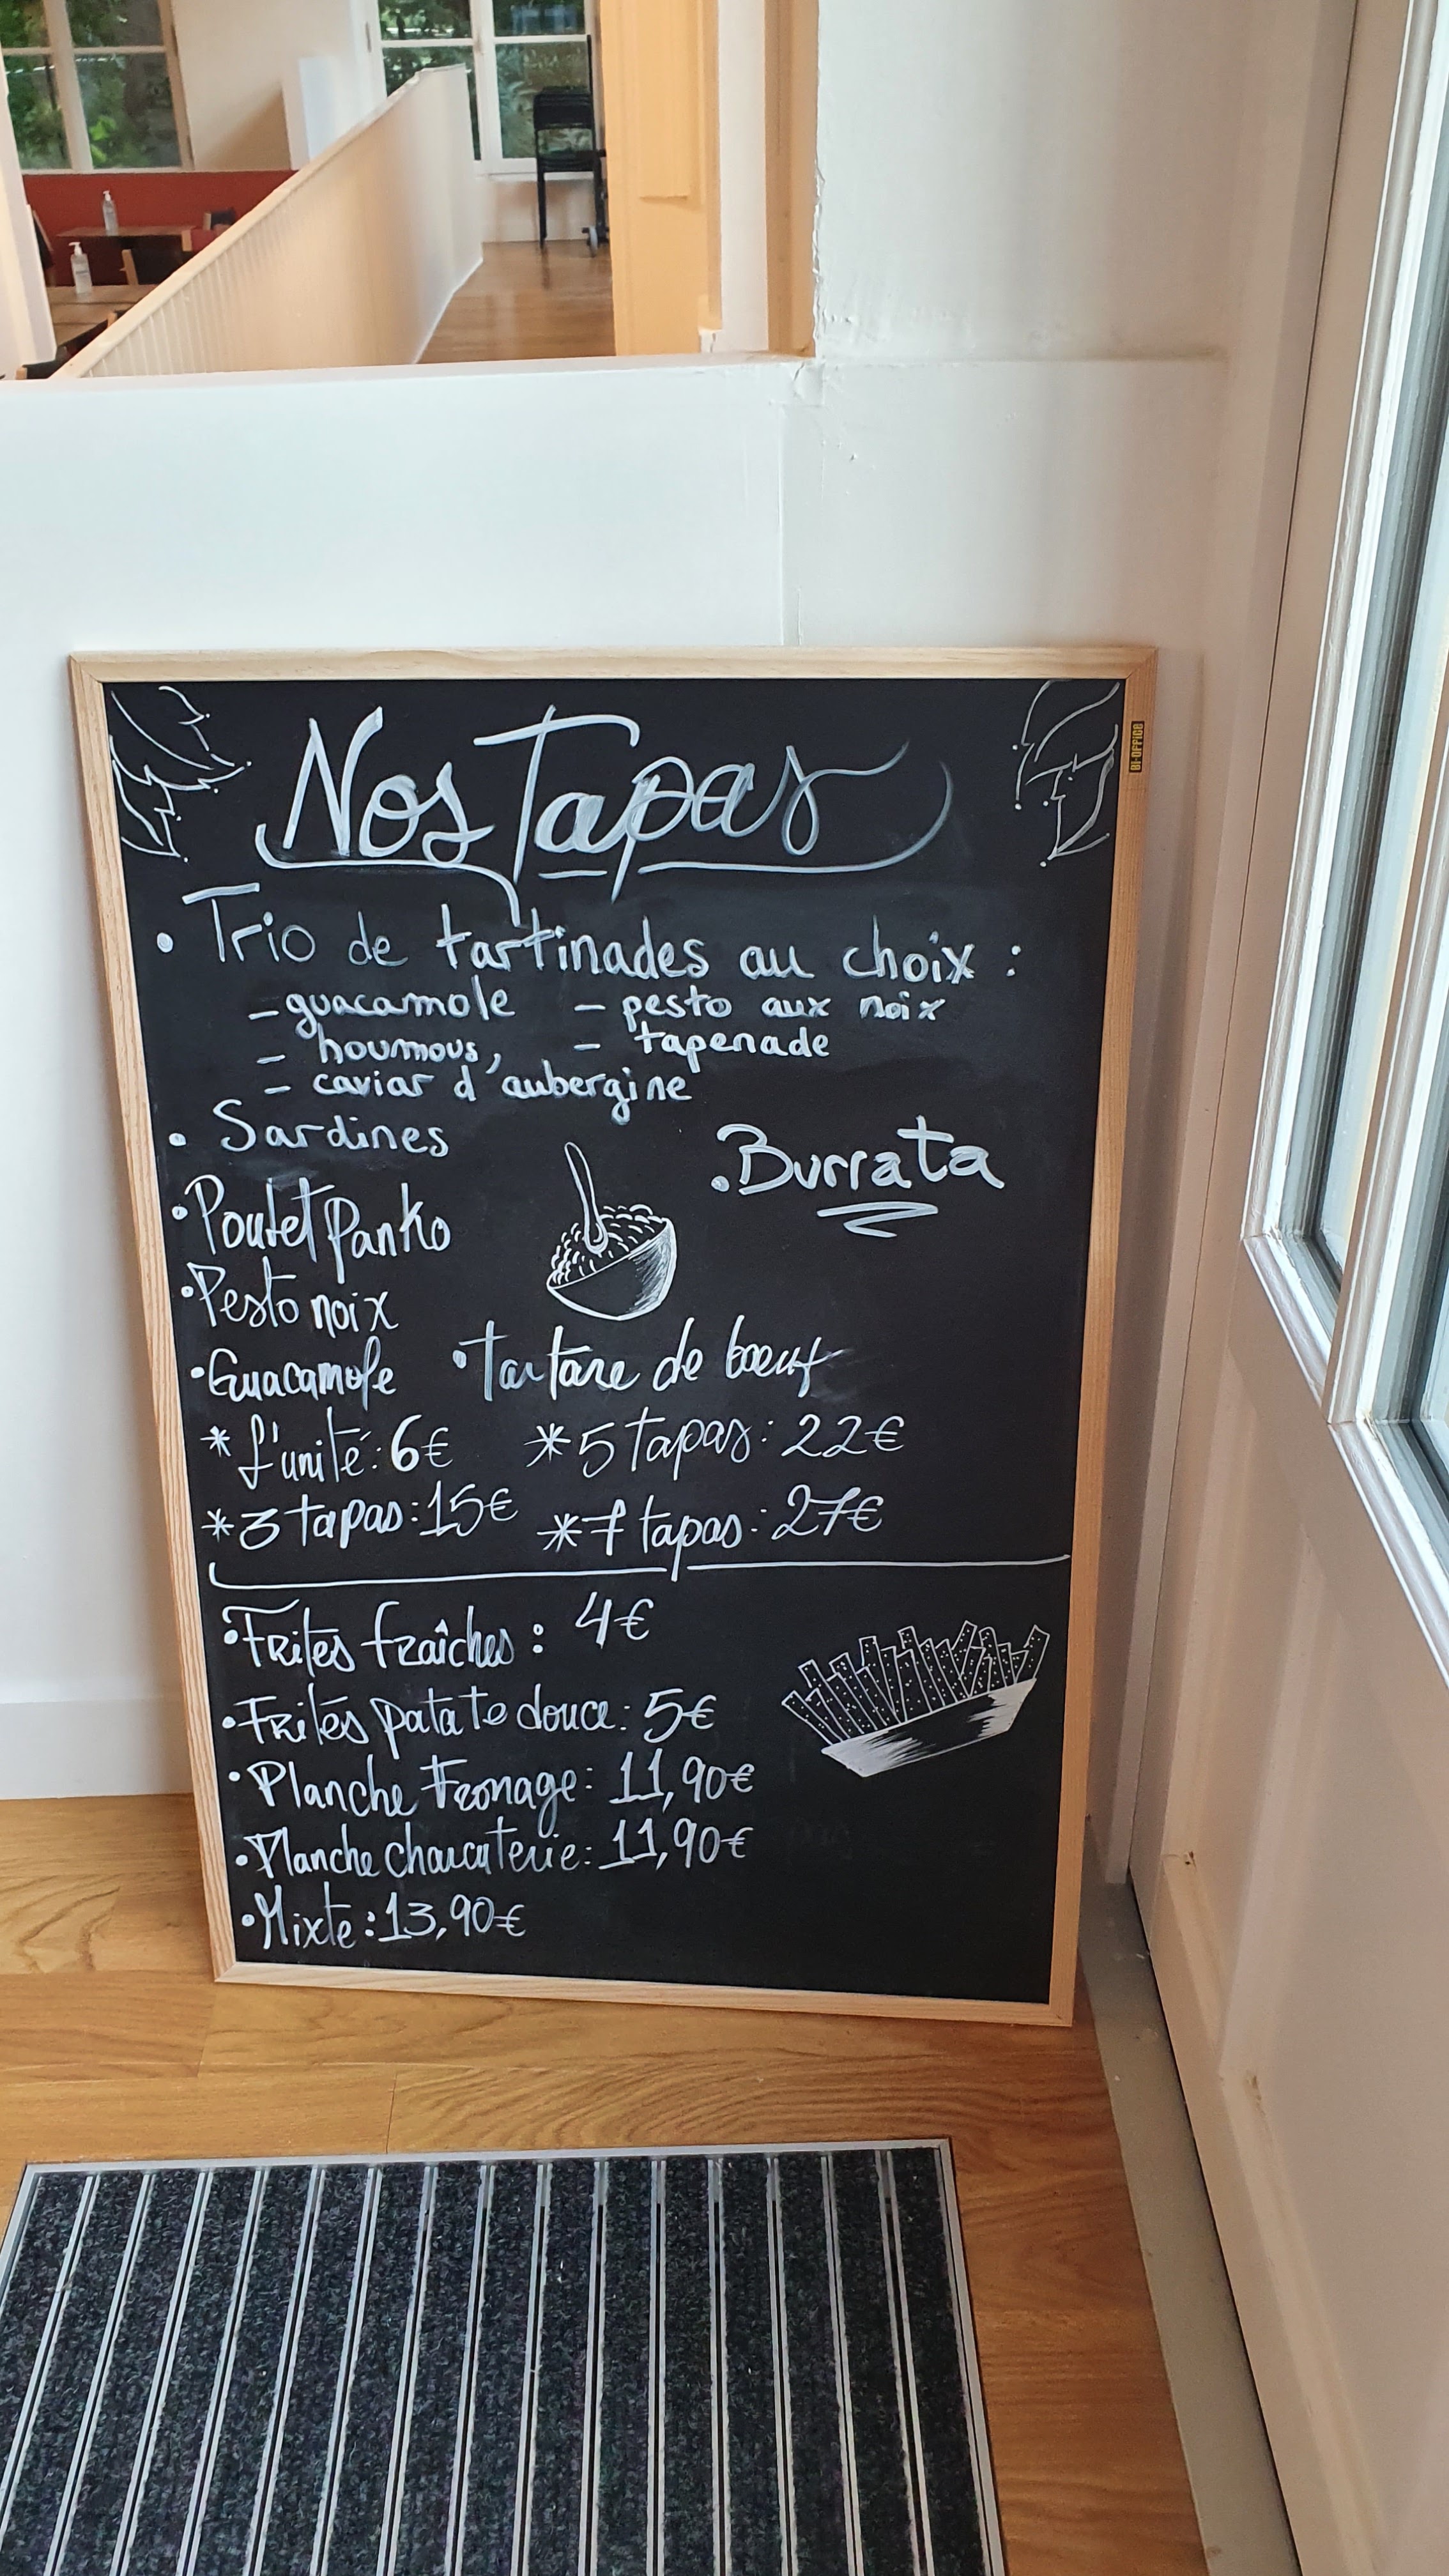 BI-OFFICE
Nos Tapas
• Trio de tartinades au choix :
– guacamole – pesto aux noix
– houmous, – tapenade
– caviar d'aubergine
• Sardines
• Burrata
• Poulet Panko
• Pesto noix
• Guacamole • Tartare de bœuf
* L'unité : 6€ * 5 tapas : 22€
* 3 tapas : 15€ * 7 tapas : 27€
• Frites fraîches : 4€
• Frites patate douce : 5€
• Planche Fromage : 11,90€
• Planche charcuterie : 11,90€
• Mixte : 13,90€